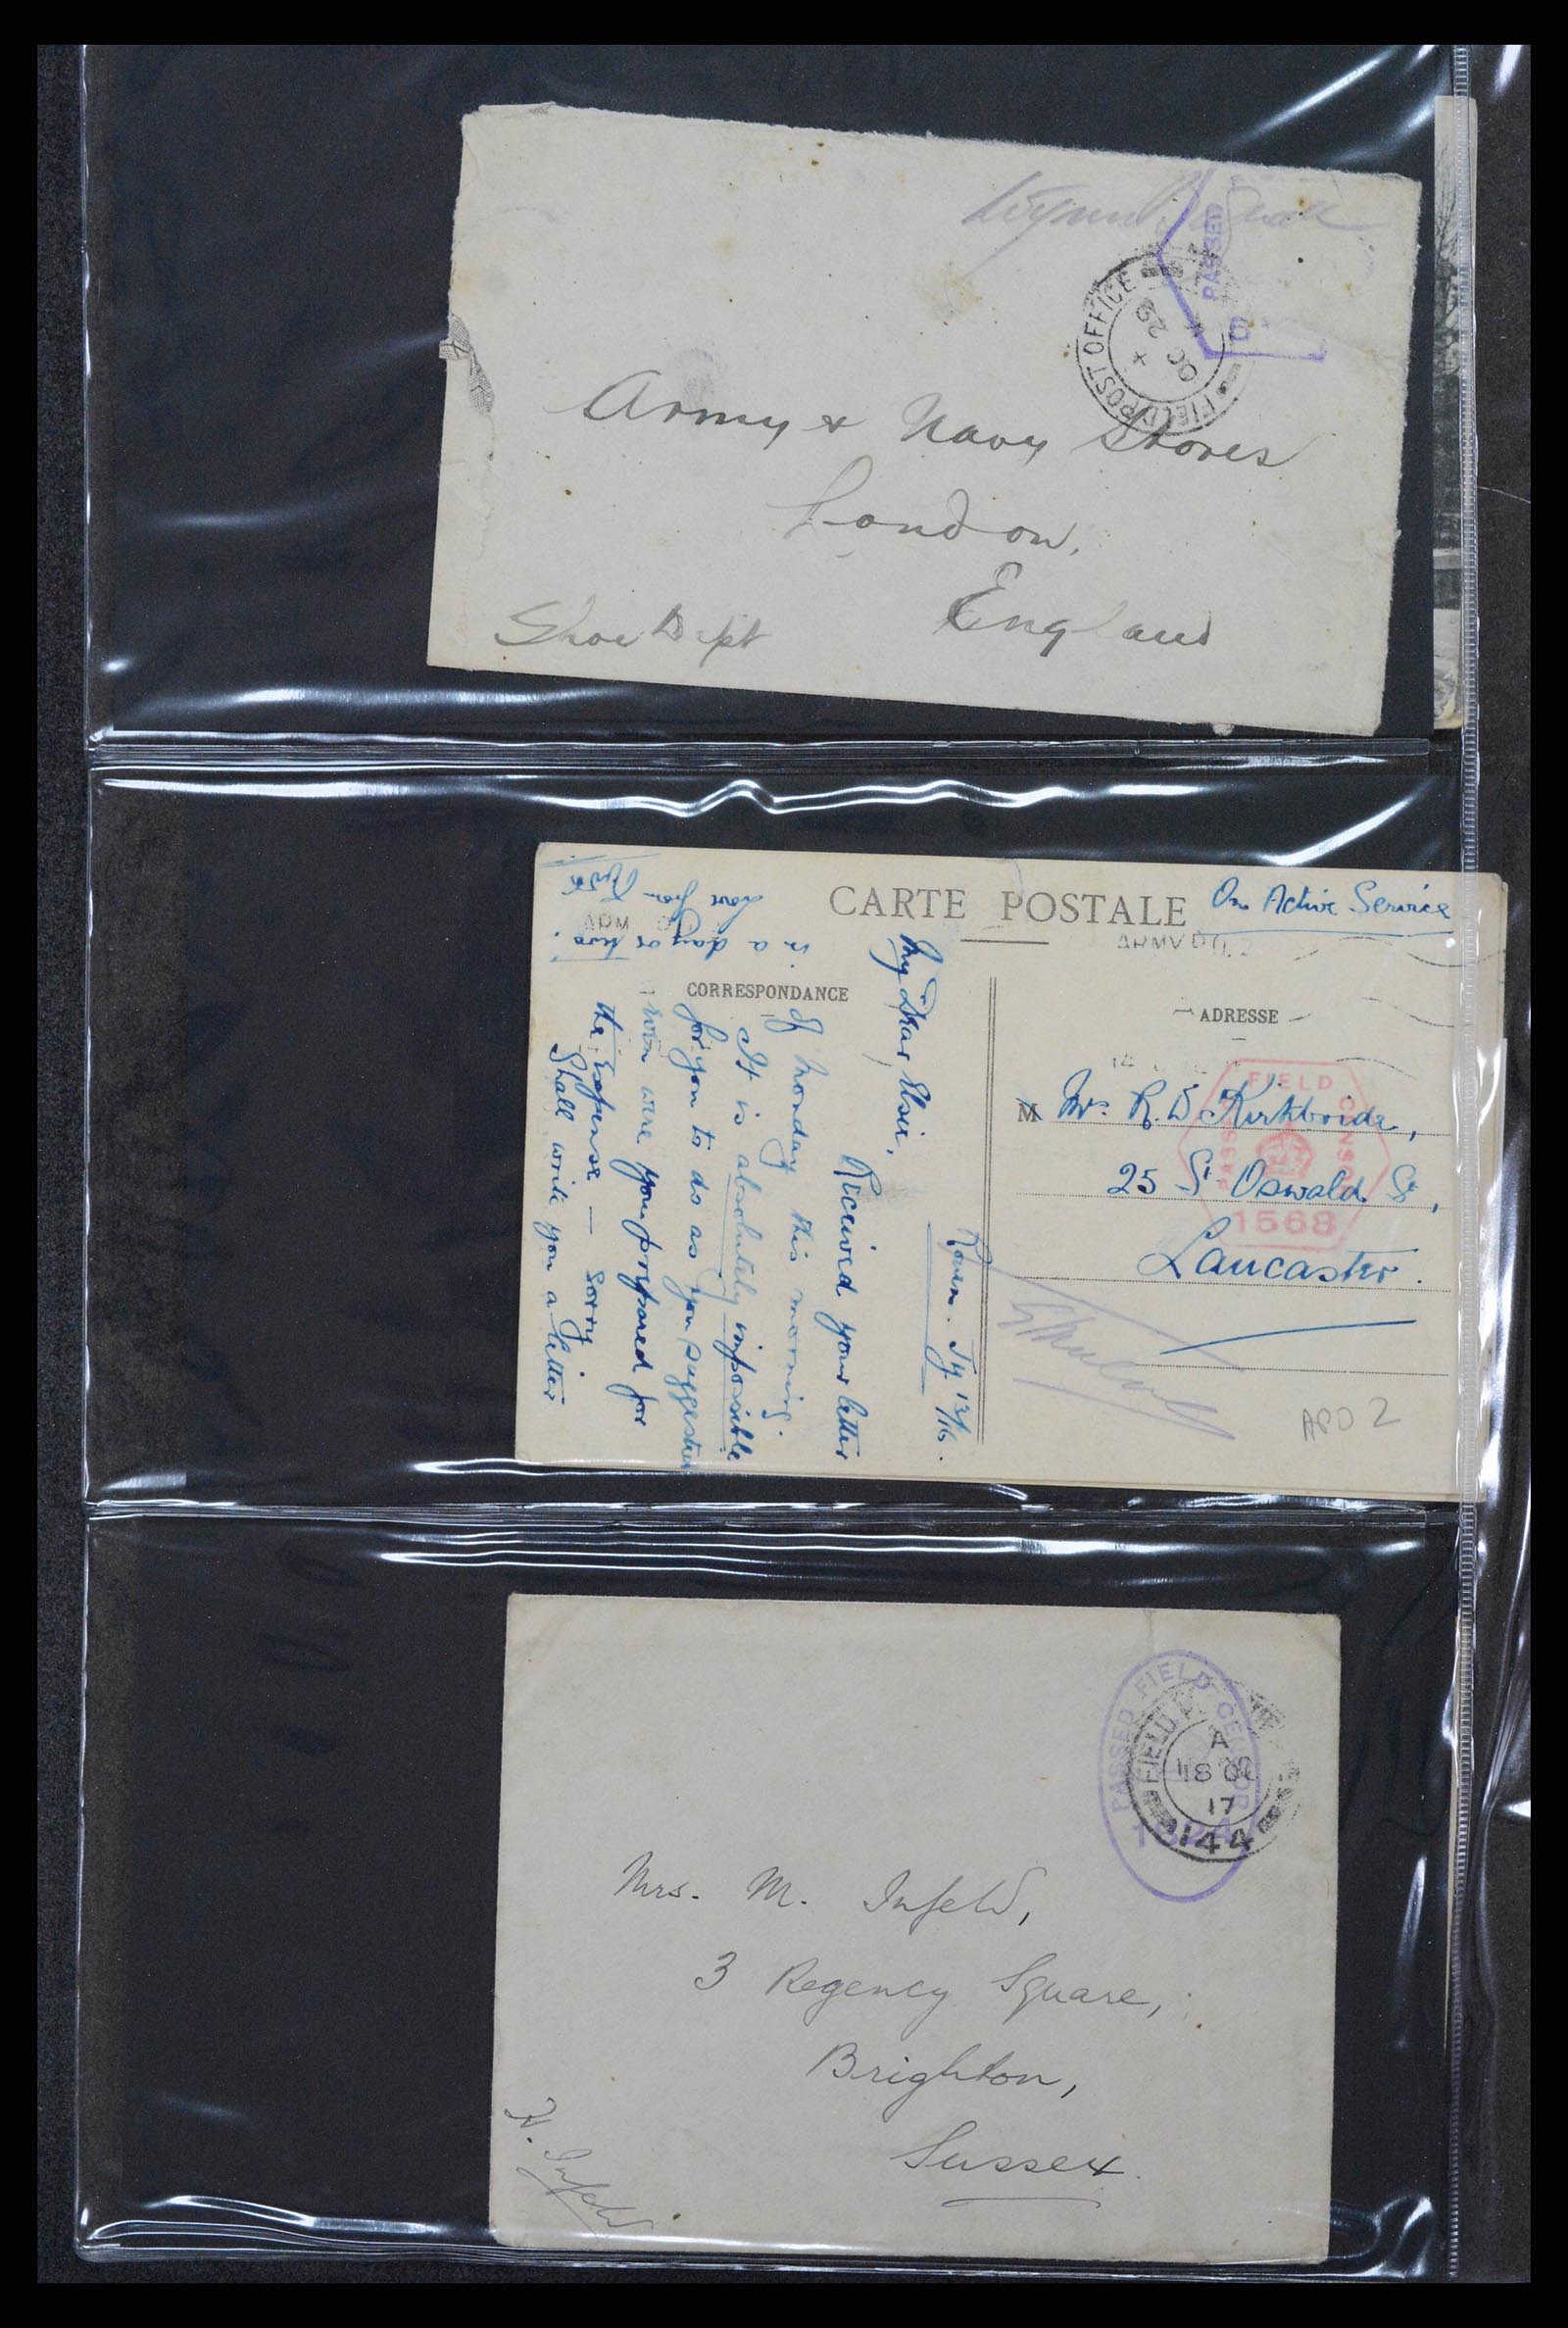 PASSED
FIELD POST OFFICE
OC 29
Army & Navy Stores
London,
England
Shoe Dept
CARTE POSTALE
On Active Service
ARMY P.O. 2
CORRESPONDANCE
ADRESSE
Rouen. Jy 13/16.
My Dear Elsie,
Received your letter
of Monday this morning.
It is absolutely impossible
for you to do as you suggested
even were you prepared for
the expense — sorry
Shall write you a letter
in a day or two.
love from
M
Mrs. R. D Kirkbride,
25 St Oswald St,
Lancaster.
PASSED FIELD CENSOR
1568
APO 2
PASSED FIELD CENSOR
FIELD
A
18 OC
17
144
Mrs. M. Infeld,
3 Regency Square,
Brighton,
Sussex.
Infeld